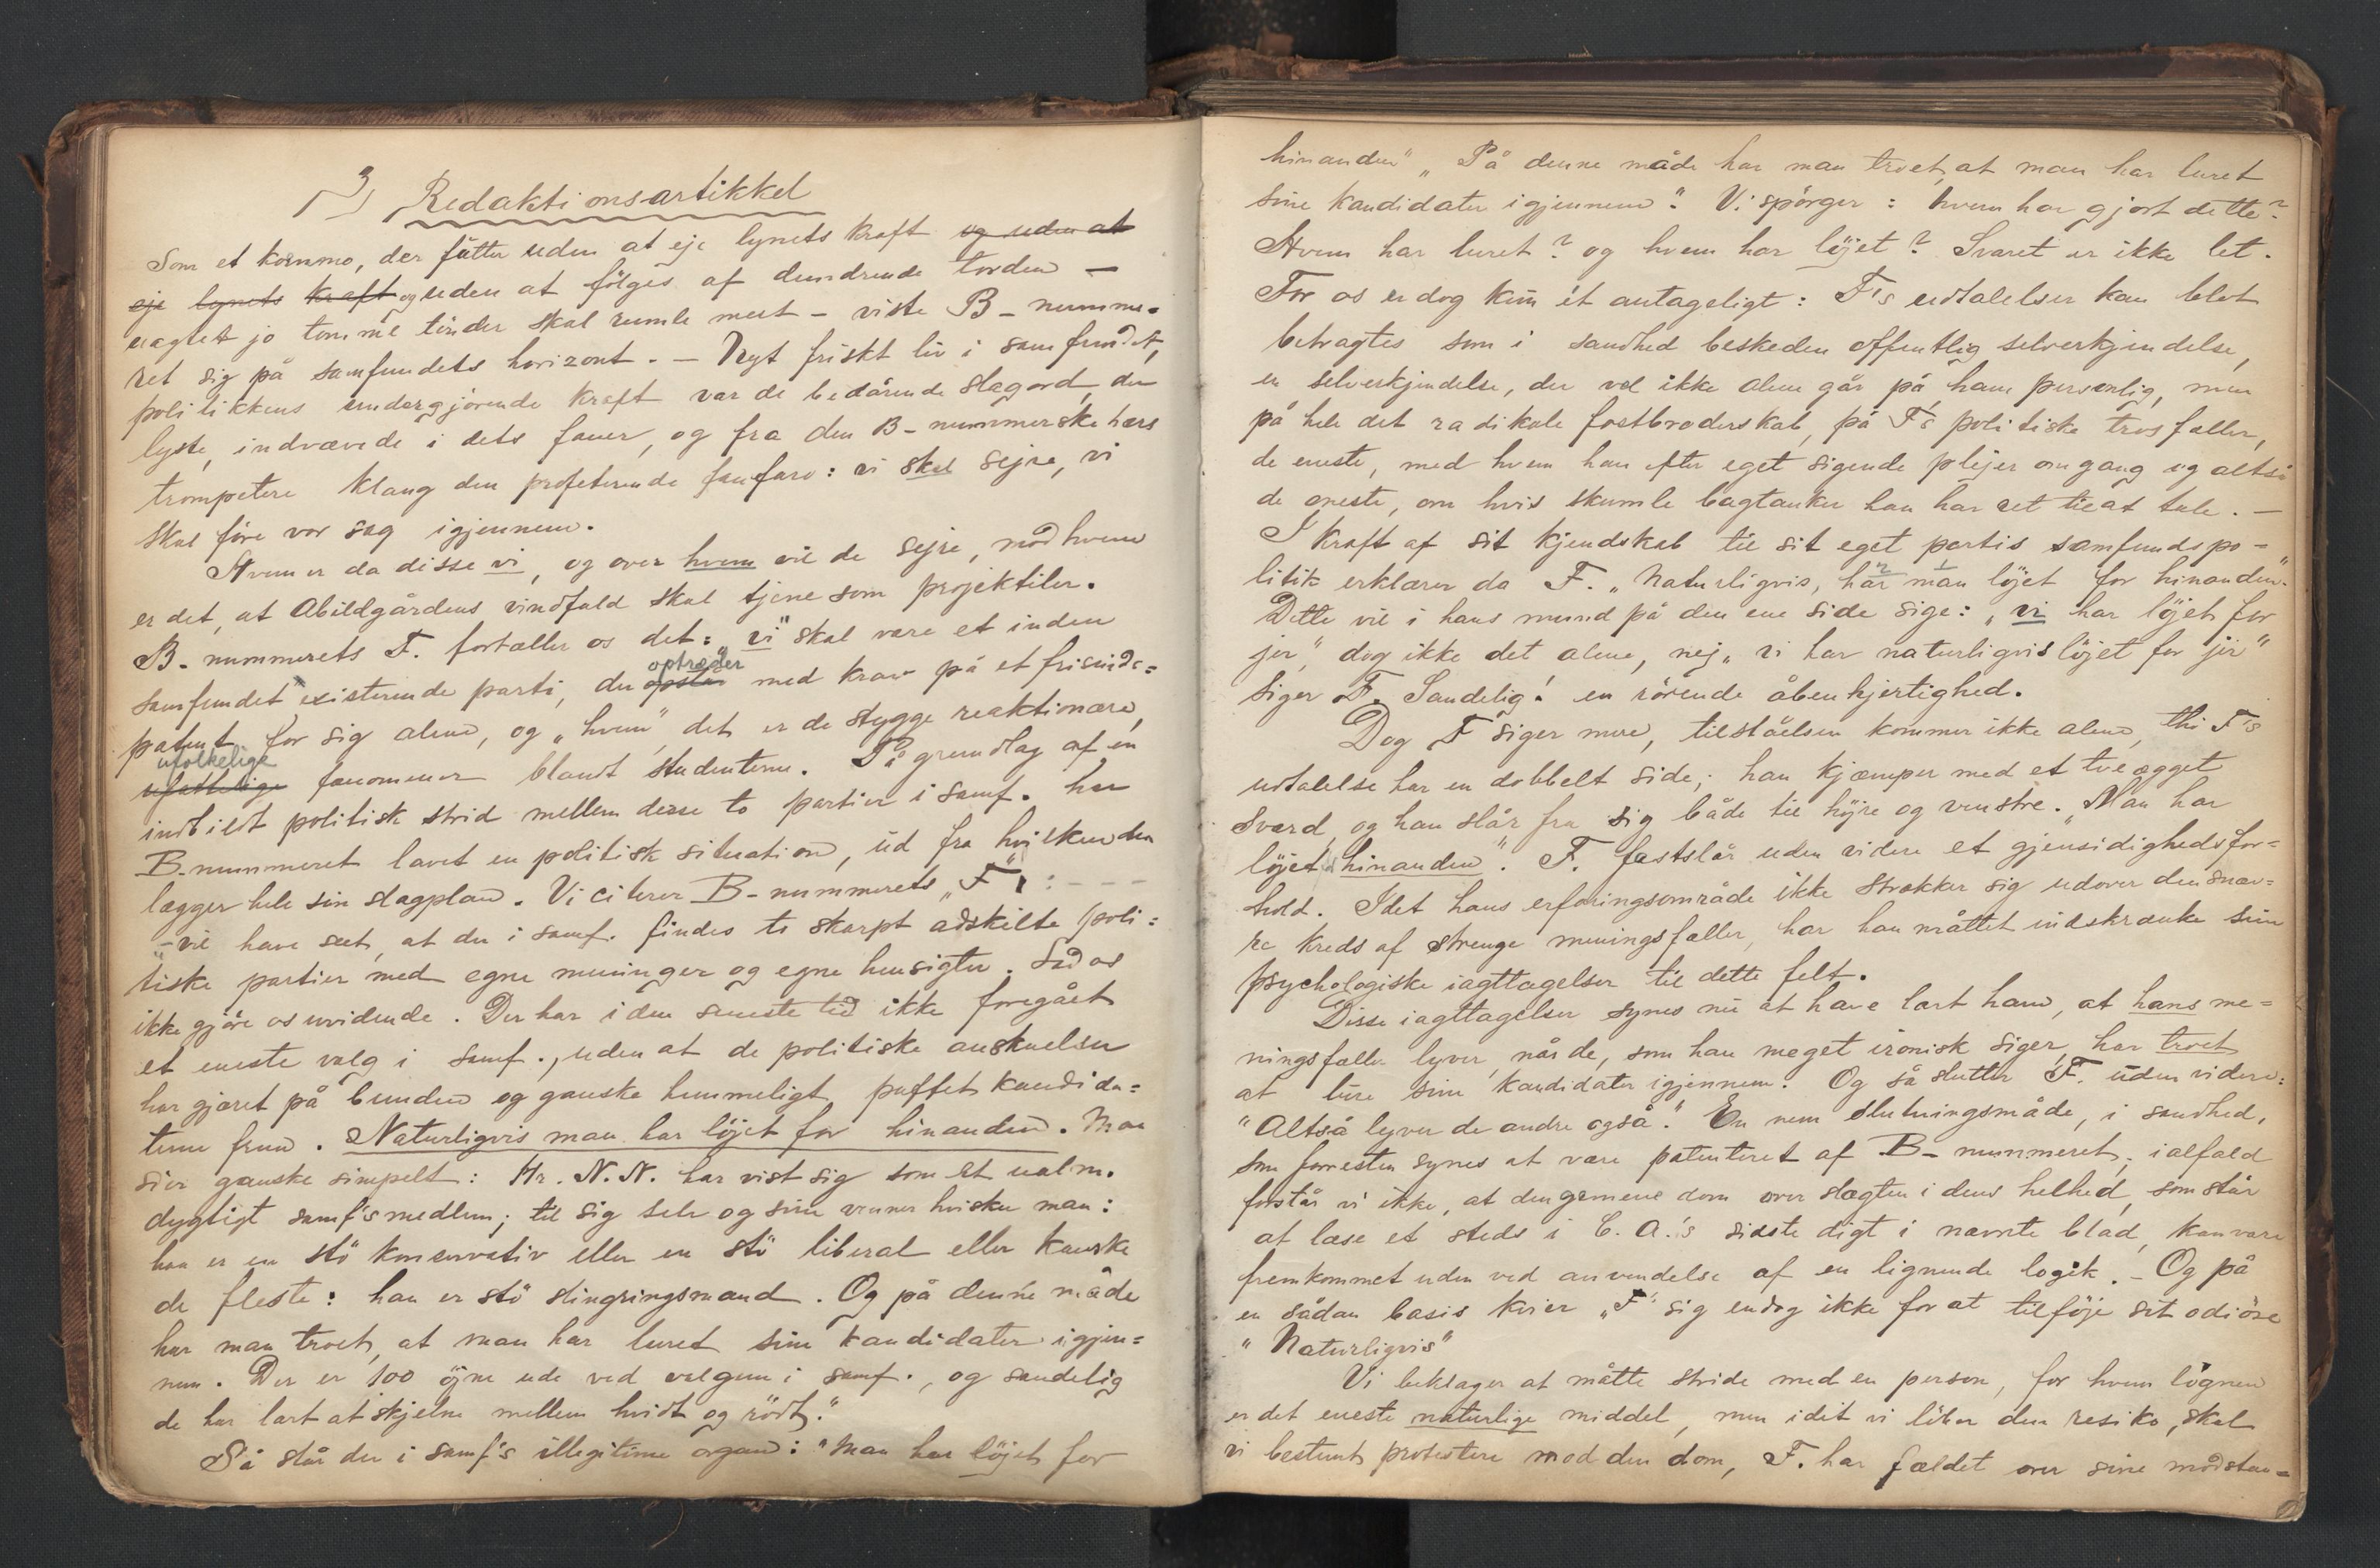 3) Redaktionsartikkel
Som et kornmo, der futter uden at eje lynets kraft og uden at
eje lynets kraft og uden at fölges af dundrende torden —
uagtet jo tomme tönder skal rumle mest – viste B – numme-
ret sig på samfundets horizont. – Nyt friskt liv i samfundet,
politikkens undergjörende kraft var de bedårende slagord, der
lyste, indvævede i dets faner, og fra den B – nummerske hærs
trompetere klang den profeterende fanfare: vi skal sejre, vi
skal före vor sag igjennem.
Hvem er da disse vi, og over hvem vil de sejre, mod hvem
er det, at Abildgårdens vindfald skal tjene som projektiler.
B – nummerets F. fortæller os det: "vi" skal være et inden
samfundet existerende parti, der opstår optræder med krav på et frisinds-
patent for sig alene, og „hvem" det er de stygge reaktionære,
ufolkelige fænomener blandt studenterne. På grundlag af en
indbildt politisk strid mellem disse to partier i samf. har
B-nummeret lavet en politisk situation, ud fra hvilken den
lægger hele sin slagplan. Vi citerer B – nummerets „F": - - -
„– vil have set, at der i samf. findes to skarpt adskilte poli-
tiske partier med egne meninger og egne hensigter. Lad os
ikke gjöre os uvidende. Der har i den seneste tid ikke foregået
et eneste valg i samf., uden at de politiske anskuelser
har gjæret på bunden og ganske hemmeligt puffet kandida-
terne frem. Naturligvis man har löjet for hinanden. Man
sier ganske simpelt: Hr. N.N. har vist sig som et ualm.
dygtigt samf's medlem; til sig selv og sine venner hvisker man:
han er en stö konservativ eller en stö liberal eller kanske
de fleste: han er stö slingringsmand. Og på denne måde
har man troet, at man har luret sine kandidater igjen-
nem. Der er 100 öjne ude ved valgene i samf., og sandelig
de har lært at skjelne mellem hvidt og rödt."
Så står der i samf's illegitime organ: "Man har löjet for
hinanden" „På denne måde har man troet, at man har luret
sine kandidater igjennem". Vi spörger: hvem har gjort dette?
Hvem har luret? og hvem har löjet? Svaret er ikke let.
For os er dog kun ét antageligt: F's udtalelser kan blot
betragtes som i sandhed beskeden offentlig selverkjendelse,
en selverkjendelse, der vel ikke alene går på ham personlig, men
på hele det radikale fostbroderskab, på F's politiske trosfæller,
de eneste, med hvem han efter eget sigende plejer omgang og altså
de eneste, om hvis skumle bagtanker han har ret til at tale. –
I kraft af sit kjendskab til sit eget partis samfundspo-
litik erklærer da F. „Naturligvis, har man löjet for hinanden".
Dette vil i hans mund på den ene side sige: „vi har löjet for
jer", dog ikke det alene, nej „vi har naturligvis löjet for jer"
siger F. Sandelig! en rörende åbenhjertighed.
Dog F siger mere, tilståelsen kommer ikke alene, thi F's
udtalelse har en dobbelt side; han kjæmper med et tveægget
sværd, og han slår fra sig både til höjre og venstre. „Man har
löjet hinanden". F. fastslår uden videre et gjensidighedsfor-
hold. Idet hans erfaringsområde ikke strækker sig udover den snæv-
re kreds af strenge meningsfæller, har han måttet indskrænke sine
psychologiske iagttagelser til dette felt.
Disse iagttagelser synes nu at have lært ham, at hans me-
ningsfæller lyver, når de, som han meget ironisk siger, har troet
at lure sine kandidater igjennem. Og så slutter F. uden videre:
"Altså lyver de andre også". En nem slutningsmåde, i sandhed,
som forresten synes at være patenteret af B – nummeret; ialfald
forstår vi ikke, at den gemene dom over slægten i dens helhed, som står
at læse et steds i C. A.'s sidste digt i nævnte blad, kan være
fremkommet uden ved anvendelse af en lignende logik. – Og på
en sådan basis kvier „F" sig endog ikke for at tilföje sit odiöse
"Naturligvis"
Vi beklager at måtte stride med en person, for hvem lögnen
er det eneste naturlige middel, men idet vi löber den resiko, skal
vi bestemt protestere mod den dom, F. har fældet over sine modstan-